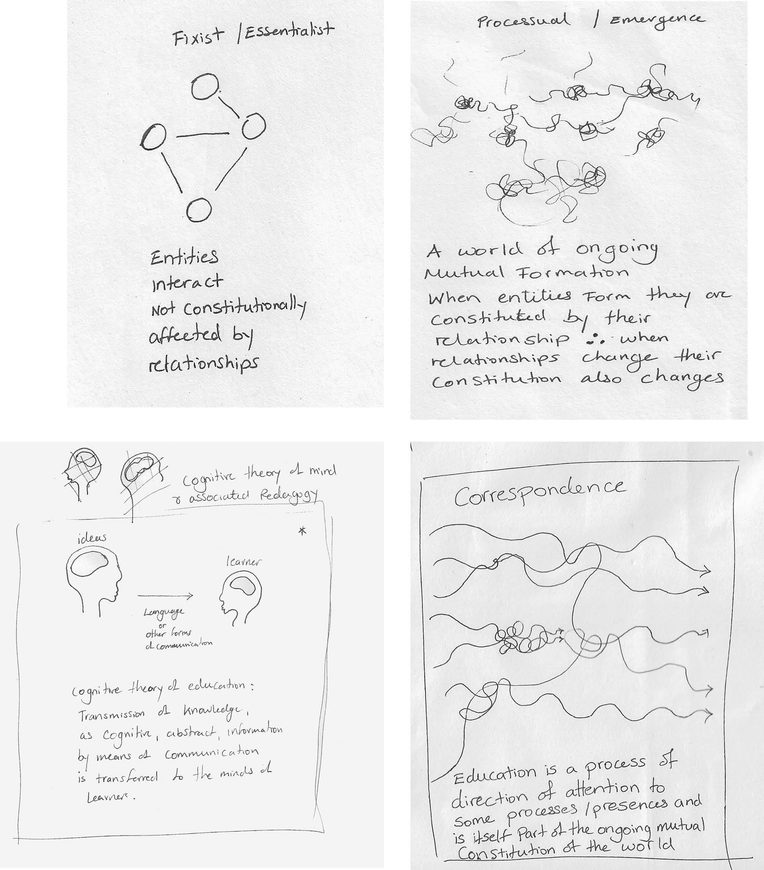 Fixist / Essentialist
Entities
interact
Not Constitutionally
affected by
relationships
Processual / Emergence
A world of ongoing
Mutual Formation
When entities Form they are
constituted by their
relationship ∴ when
relationships change their
constitution also changes
Cognitive theory of mind
& associated Pedagogy
*
ideas
learner
Language
or
other forms
of communication
Cognitive theory of education:
Transmission of knowledge,
as cognitive, abstract, information
by means of communication
is transferred to the minds of
Learners.
Correspondence
Education is a process of
direction of attention to
some processes/presences and
is itself Part of the ongoing mutual
Constitution of the world